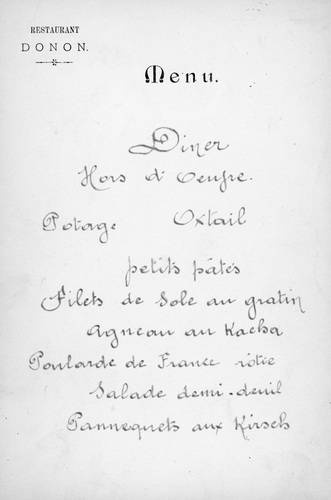 RESTAURANT
DONON.
Menu.
Diner
Hors d'Oeufre.
Potage Oxtail
petits pâtés
Filets de Sole au gratin
Agneau au Kacha
Poularde de France rôtie
Salade demi-deuil
Pannequets aux Kirsch